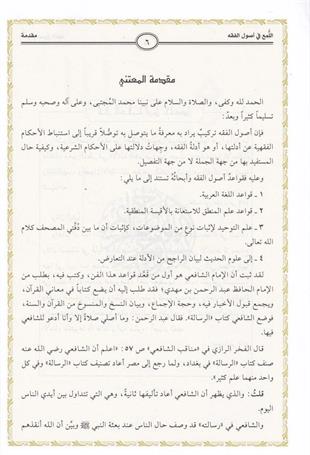 اللُّمع في أصول الفقه
٦
مقدمة
مقدمة المعتني
الحمد لله وكفى، والصلاة والسلام على نبينا محمد المُجتبى، وعلى آله وصحبه وسلم
تسليماً كثيراً وبعدُ:
فإن أصول الفقه تركيبٌ يراد به معرفةُ ما يتوصل به توصُّلاً قريباً إلى استنباط الأحكام
الفقهية عن أدلتها، أو هو أدلة الفقه، وجهاتُ دلالتها على الأحكام الشرعية، وكيفية حال
المستفيد بها من جهة الجملة لا من جهة التفصيل.
وعليه فقواعدُ أصول الفقه وأبحاثُه تستند إلى ما يلي:
١ ـ قواعد اللغة العربية.
٢ ـ قواعد علم المنطق للاستعانة بالأقيسة المنطقية.
٣ ـ علم التوحيد لإثبات نوع من الموضوعات، كإثبات أن ما بين دَفَّتي المصحف كلام
الله تعالى.
٤ ـ إلى علوم الحديث لبيان الراجح من الأدلة عند التعارض.
لقد ثبت أن الإمام الشافعي هو أول من قَعَّد قواعد هذا الفن، وكتب فيه، بطلب من
الإمام الحافظ عبد الرحمن بن مهدي؛ فقد طلب إليه أن يضع كتاباً في معاني القرآن،
ويجمع قبول الأخبار فيه، وحجة الإجماع، وبيان النسخ والمنسوخ من القرآن والسنة،
فوضع الشافعي كتاب «الرسالة». فقال عبد الرحمن: وما أصلي صلاةً إلا وأنا أدعو للشافعي
فيها.
قال الفخر الرازي في «مناقب الشافعي» ص ٥٧: «اعلم أن الشافعي رضي الله عنه
صنف كتاب «الرسالة» في بغداد، ولما رجع إلى مصر أعاد تصنيف كتاب «الرسالة» وفي كل
واحد منهما علم كثير».
قلتُ: والذي يظهر أن الشافعي أعاد تأليفها ثانيةً، وهي التي تتداول بين أيدي الناس
اليوم.
والشافعي في «رسالته» قد وصف حال الناس عند بعثة النبي ﷺ وبيَّن أن الله أنقذهم